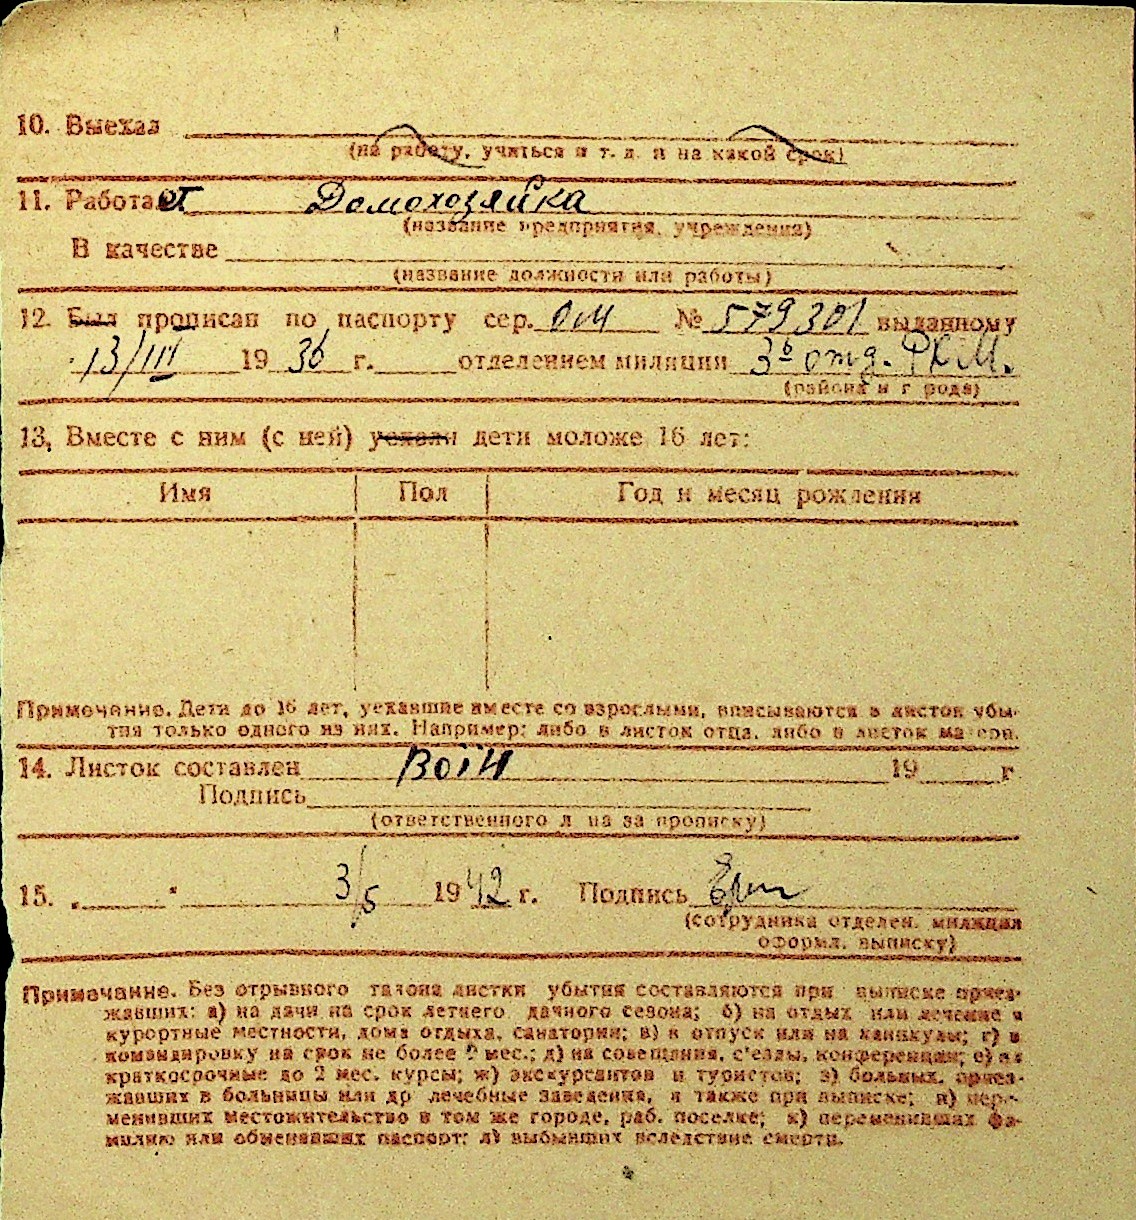 10. Выехал
(на работу, учиться и т. д. и на какой срок)
11. Работает Домохозяйка
(название предприятия, учреждения)
В качестве
(название должности или работы)
12. Был прописан по паспорту сер. ОМ № 579301 выданному
13/III 1936 г. отделением милиции 3е отд. РКМ.
(района и города)
13, Вместе с ним (с ней) уехали дети моложе 16 лет:
Имя Пол Год и месяц рождения
Примечание. Дети до 16 лет, уехавшие вместе со взрослыми, вписываются в листок убы-
тия только одного из них. Например: либо в листок отца, либо в листок матери.
14. Листок составлен 19 г
Подпись
(ответственного лица за прописку)
15. „ " 3/5 1942 г. Подпись
(сотрудника отделен. милиции
оформл. выписку)
Примечание. Без отрывного талона листки убытия составляются при выписке приез-
жавших: а) на дачи на срок летнего дачного сезона; б) на отдых или лечение в
курортные местности, дома отдыха, санатории; в) в отпуск или на каникулы; г) в
командировку на срок не более 2 мес.; д) на совещания, с'езды, конференции; е) на
краткосрочные до 2 мес. курсы; ж) экскурсантов и туристов; з) больных, приез-
жавших в больницы или др лечебные заведения, а также при выписке; и) пере-
менивших местожительство в том же городе, раб. поселке; к) переменивших фа-
милию или обменявших паспорт; л) выбывших вследствие смерти.